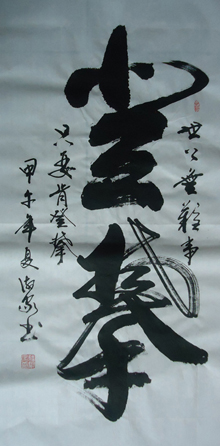 登攀
世上無難事
只要肯登攀
甲午年夏 书